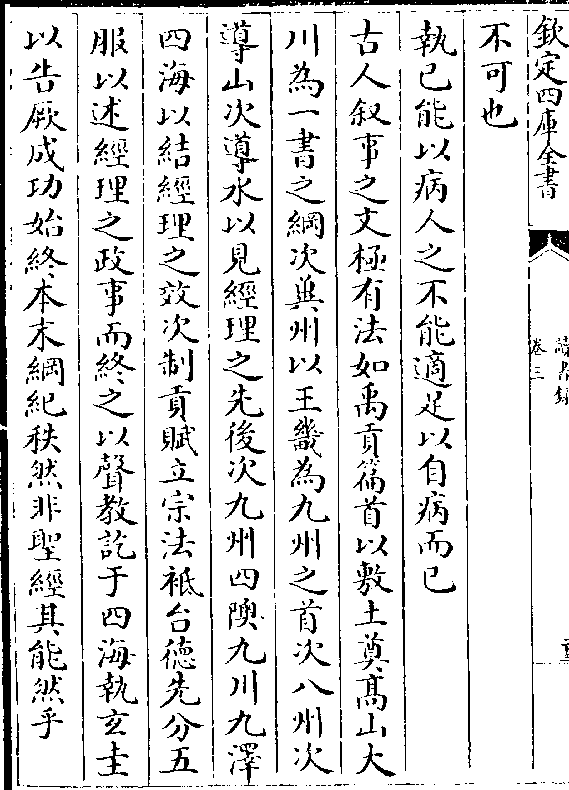 欽定四庫全書
卷三
讀書錄
不可也
執已能以病人之不能適足以自病而已
古人叙事之文極有法如禹貢篇首以敷土奠髙山大
川為一書之綱次兾州以王畿為九州之首次八州次
導山次導水以見經理之先後次九州四隩九川九澤
四海以結經理之效次制貢賦立宗法祗台德先分五
服以述經理之政事而終之以聲教訖于四海執玄圭
以告厥成功始終本末綱紀秩然非聖經其能然乎